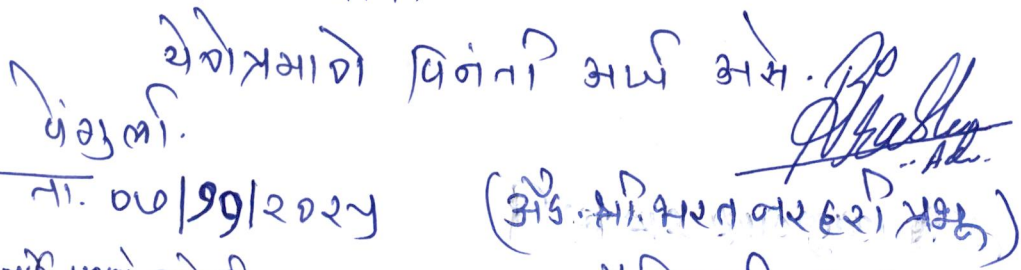 येणेप्रमाणे विनंती अर्ज असे.
पिंगुळी.
ता. ०७/११/२०२५
(अॅड. श्री. भरत नरहरी प्रभू)